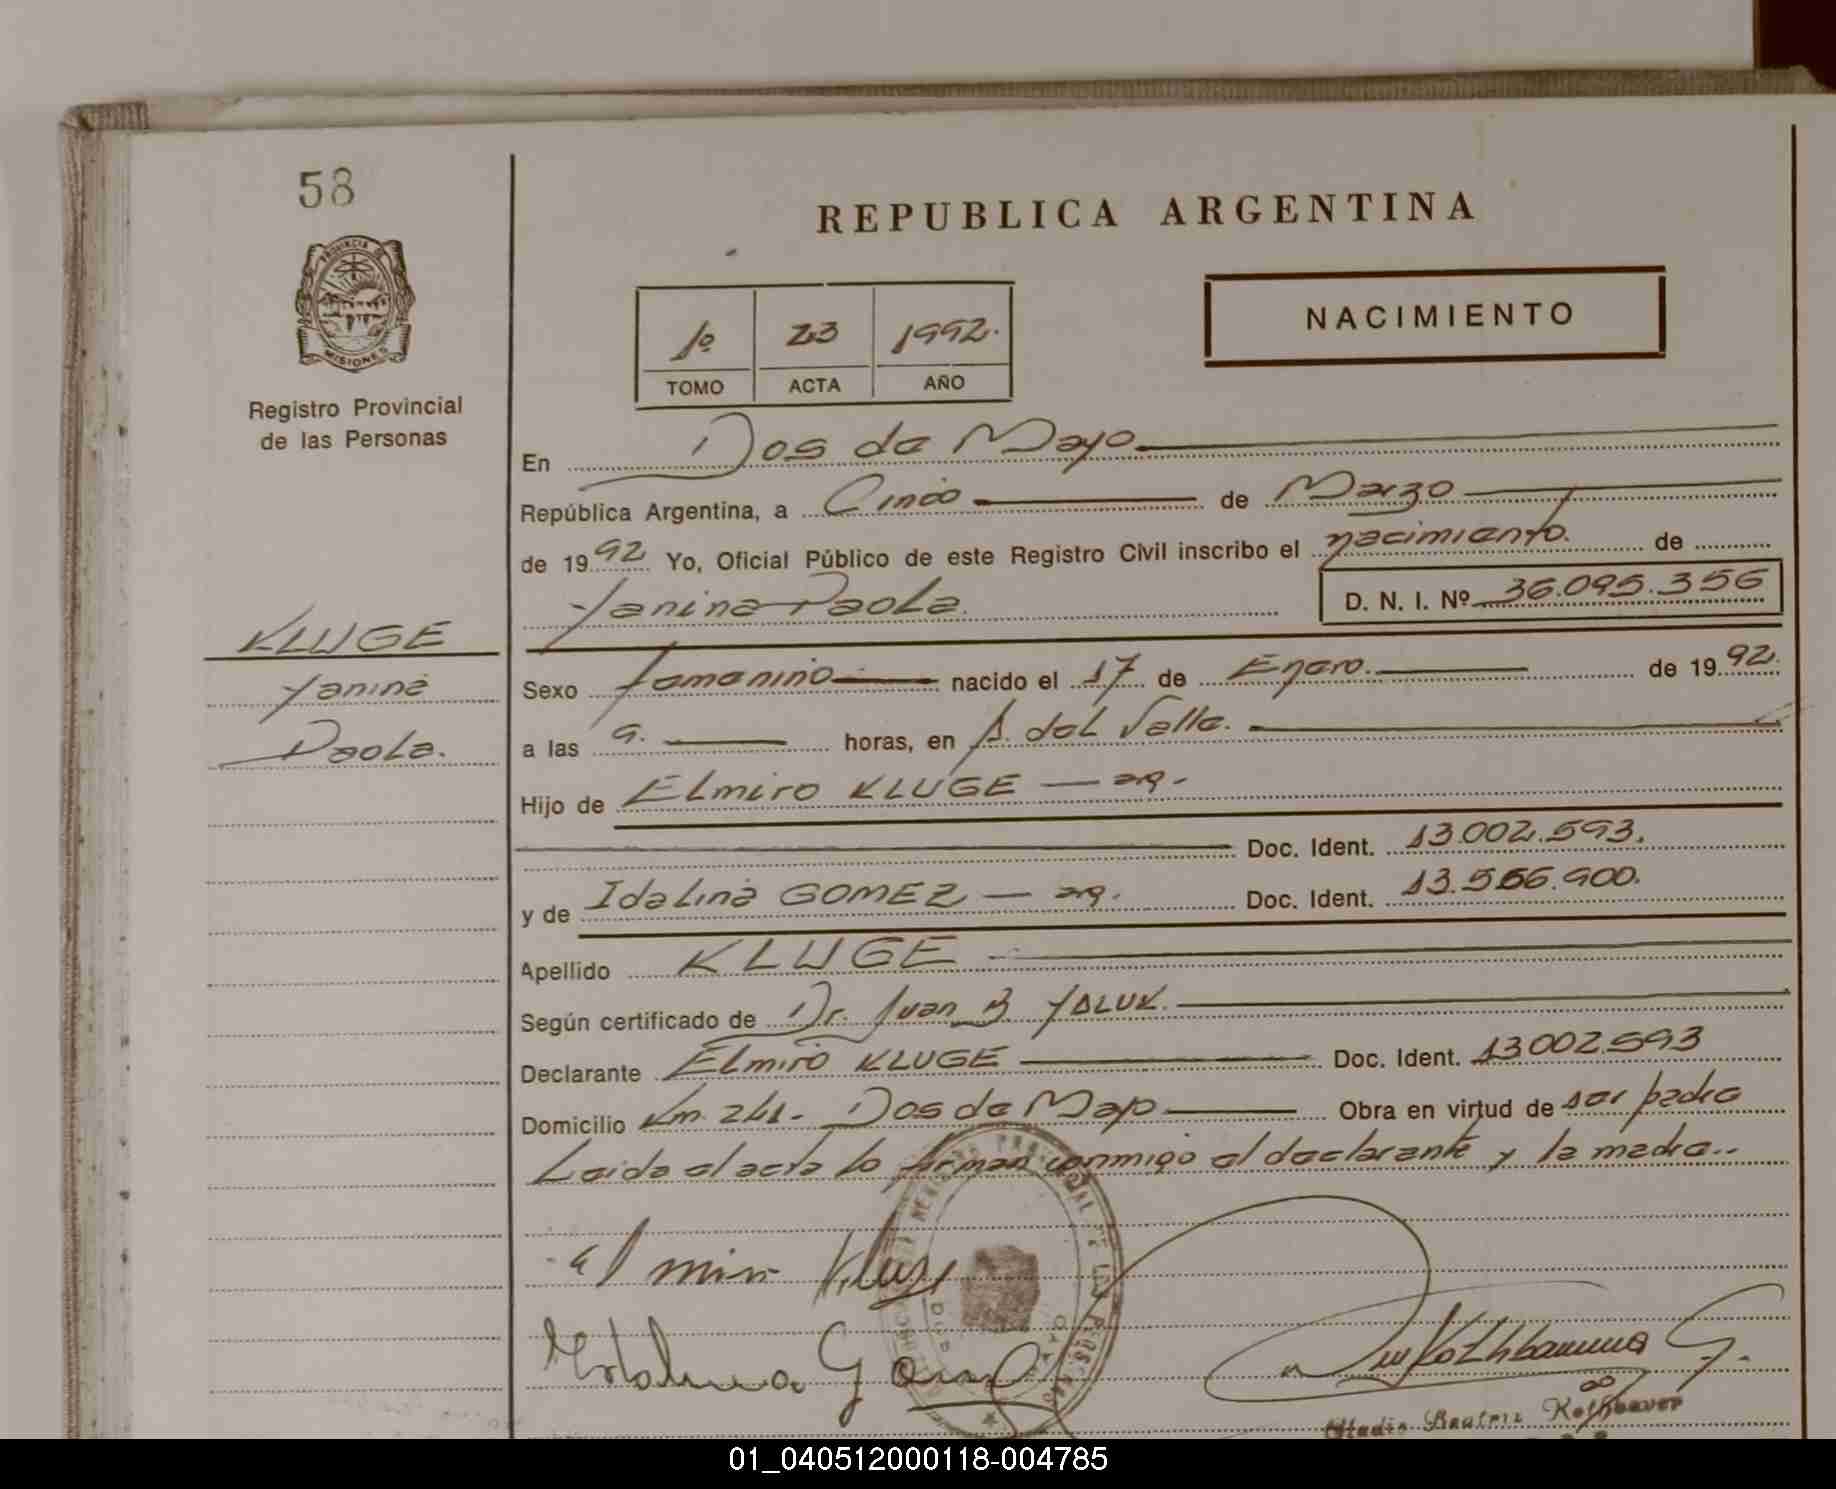 58
REPUBLICA ARGENTINA
PROVINCIA DE
MISIONES
Registro Provincial
de las Personas
1º 23 1992.
TOMO ACTA AÑO
NACIMIENTO
En Dos de Mayo
República Argentina, a Cinco de Marzo
de 1992 Yo, Oficial Público de este Registro Civil inscribo el nacimiento. de
Yanina Paola. D. N. I. Nº 36.095.356
KLUGE
Yanina
Paola.
Sexo femenino nacido el 17 de Enero. de 1992.
a las 9. horas, en A. del Valle.
Hijo de Elmiro KLUGE — arg.
Doc. Ident. 13.002.593.
y de Idalina GOMEZ — arg. Doc. Ident. 13.566.900.
Apellido KLUGE
Según certificado de Dr. Juan B. YALUK.
Declarante Elmiro KLUGE Doc. Ident. 13.002.593
Domicilio Km. 241. Dos de Mayo Obra en virtud de ser padre
Leida el acta lo firman conmigo el declarante y la madre..
Elmiro Kluge
Idalina Gomez
Beatriz
01_040512000118-004785